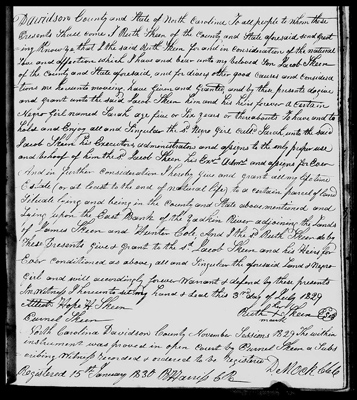 Davidson County and State of North Carolina To all people to whom these
Presents Shall come I Ruth Skeen of the County and State aforesaid send Greet
ing Know ye that I the said Ruth Skeen for and in consideration of the natural
love and affection which I have and bear unto my beloved Son Jacob Skeen
of the County and State aforesaid, and for divers other good Causes and Considera
tions me hereunto moving have given and granted and by these presents do give
and grant unto the said Jacob Skeen him and his heirs forever a Certain
Negro girl named Sarah age five or Six years or thereabouts To have and to
hold and Enjoy all and Singular the Sd Negro Girl Calld Sarah unto the said
Jacob Skeen his Executors, administrators and assigns to the only proper use
and behoof of him the Sd Jacob Skeen his Exrs Admrs and assigns for Ever
And in further Consideration I hereby give and grant all my life time
Estate (or at least to the end of natural life) to a certain parcel of Land
Situate lying and being in the County and State above mentioned and
lying upon the East Bank of the Yadkin River adjoining the lands
of James Skeen and Wenter Cole. And I the Sd Ruth Skeen do by
these Presents give & Grant to the Sd Jacob Skeen and his Heirs for
Ever conditioned as above, all and Singular the aforesaid Land & Negro
Girl and will accordingly forever Warrant & defend by these presents
In Witness I hereunto set my hand & seal this 3rd Day of July 1829
Attest Hope H Skeen
her
Ruth Skeen Seal
mark
Burnel Skeen
North Carolina Davidson County November Sessions 1829 The within
instrument was proved in open Court by Burnel Skeen a Subs
cribing Witness recorded & ordered to be Registered
D Mock Clk
Registered 15th January 1830 B Harriss P.R